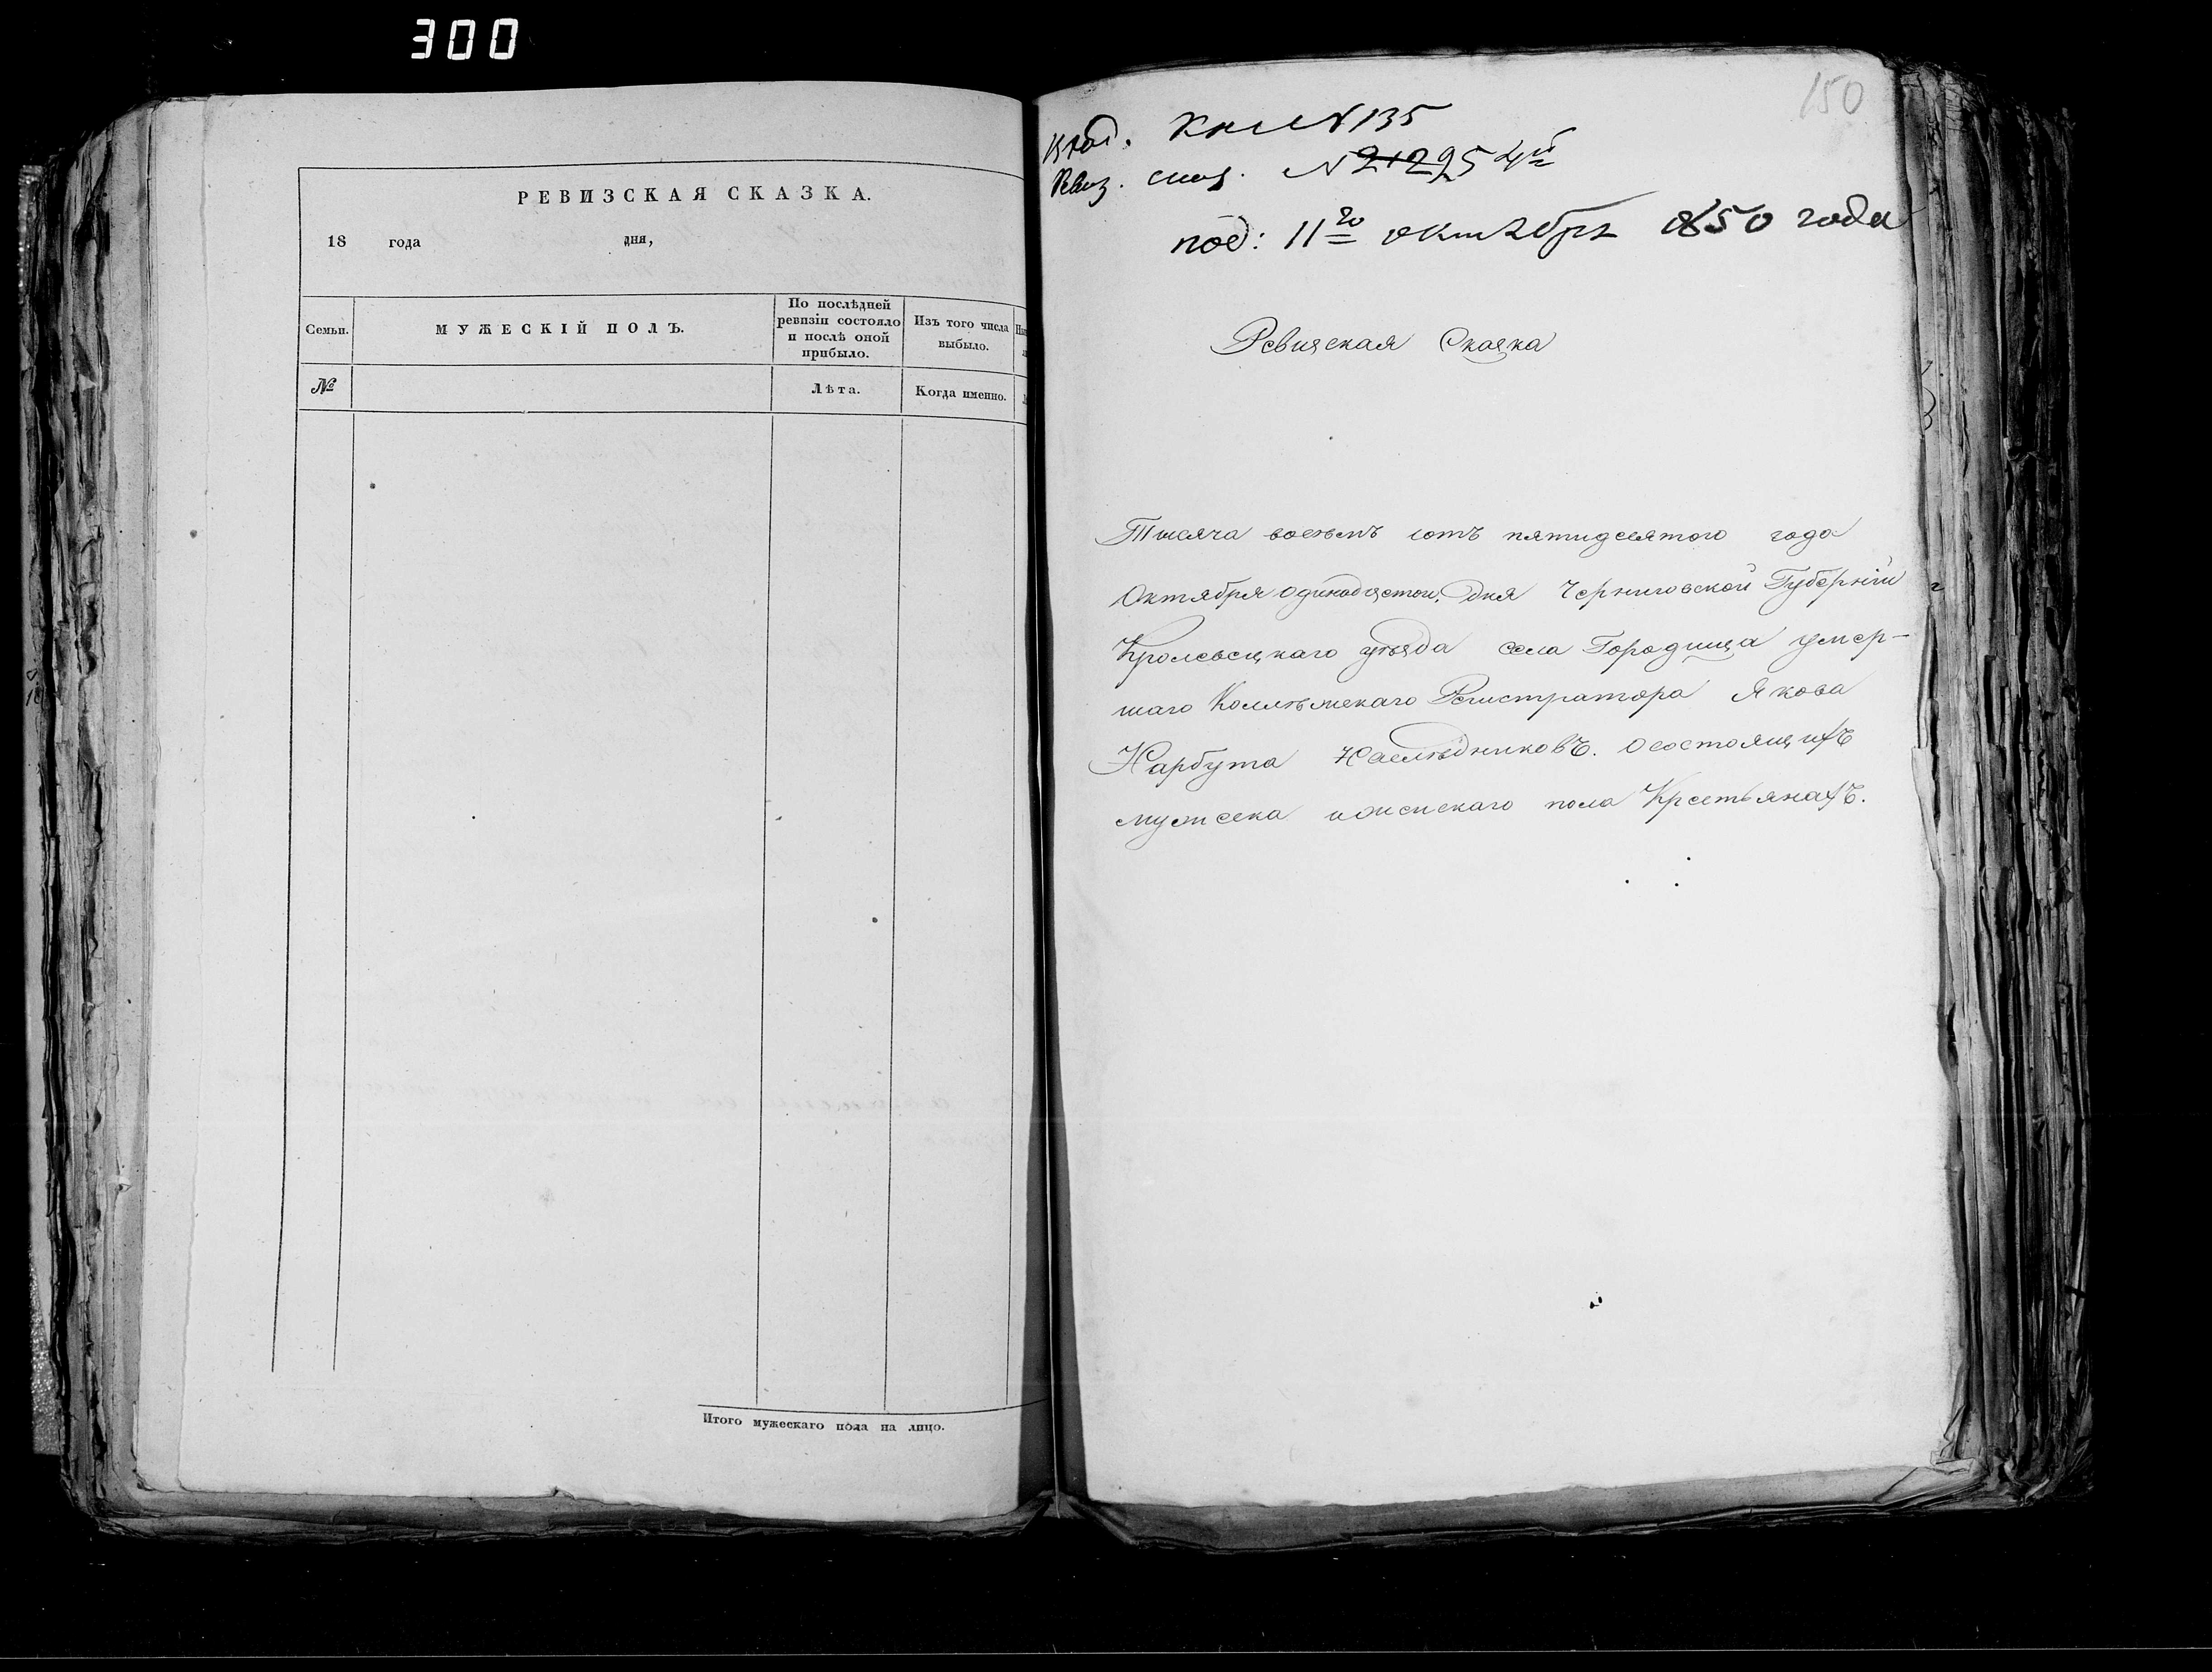 300
РЕВИЗСКАЯ СКАЗКА.
18 года дня,
Семьи.
МУЖЕСКІЙ ПОЛЪ.
По послѣдней
ревизіи состояло
и послѣ оной
прибыло.
Изъ того числа
выбыло.
№
Лѣта.
Когда именно.
Итого мужескаго пола на лицо.
150
Кни N 135
Ревиз. сказ. N 295
под: 11го октября 1850 года
Ревизская Сказка
Тысяча восемъ сотъ пятидесятого года
Октября одинадцятого дня Черниговской Губерніи
Кролевецкаго уѣзда села Городища умер-
шаго Коллѣжскаго Регистратора Якова
Нарбута Наслѣдниковъ. о состоящихъ
мужеска и женскаго пола Крестьянахъ.